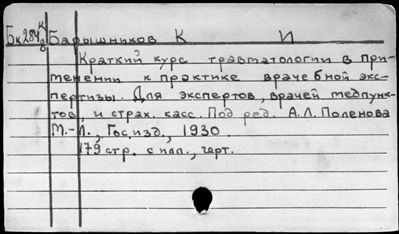 Бк284 К/8 Барышников К И
Краткий курс травматологии в при-
менении к практике врачебной экс-
пертизы. Для экспертов, врачей медпунк-
тов, и страх. касс. Под ред. А.Л. Поленова
М.-Л., Гос.изд., 1930.
179 стр. с илл., черт.